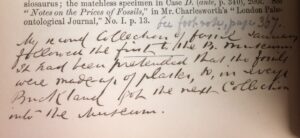 siosaurus; the matchless specimen in Case D.
See "Notes on the Prices of Fossils," in Mr. Charlesworth's "London Palæ-
ontological Journal," No. I. p. 13. See foot note, page 337
My second Collection of fossil Saurians
followed the first to the B. Museum.
It had been pretended that the fossils
were made up of plaster, &
Buckland got the next Collection
into the Museum.